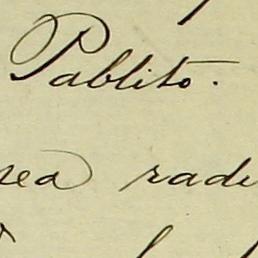 Pablito.
sea radi